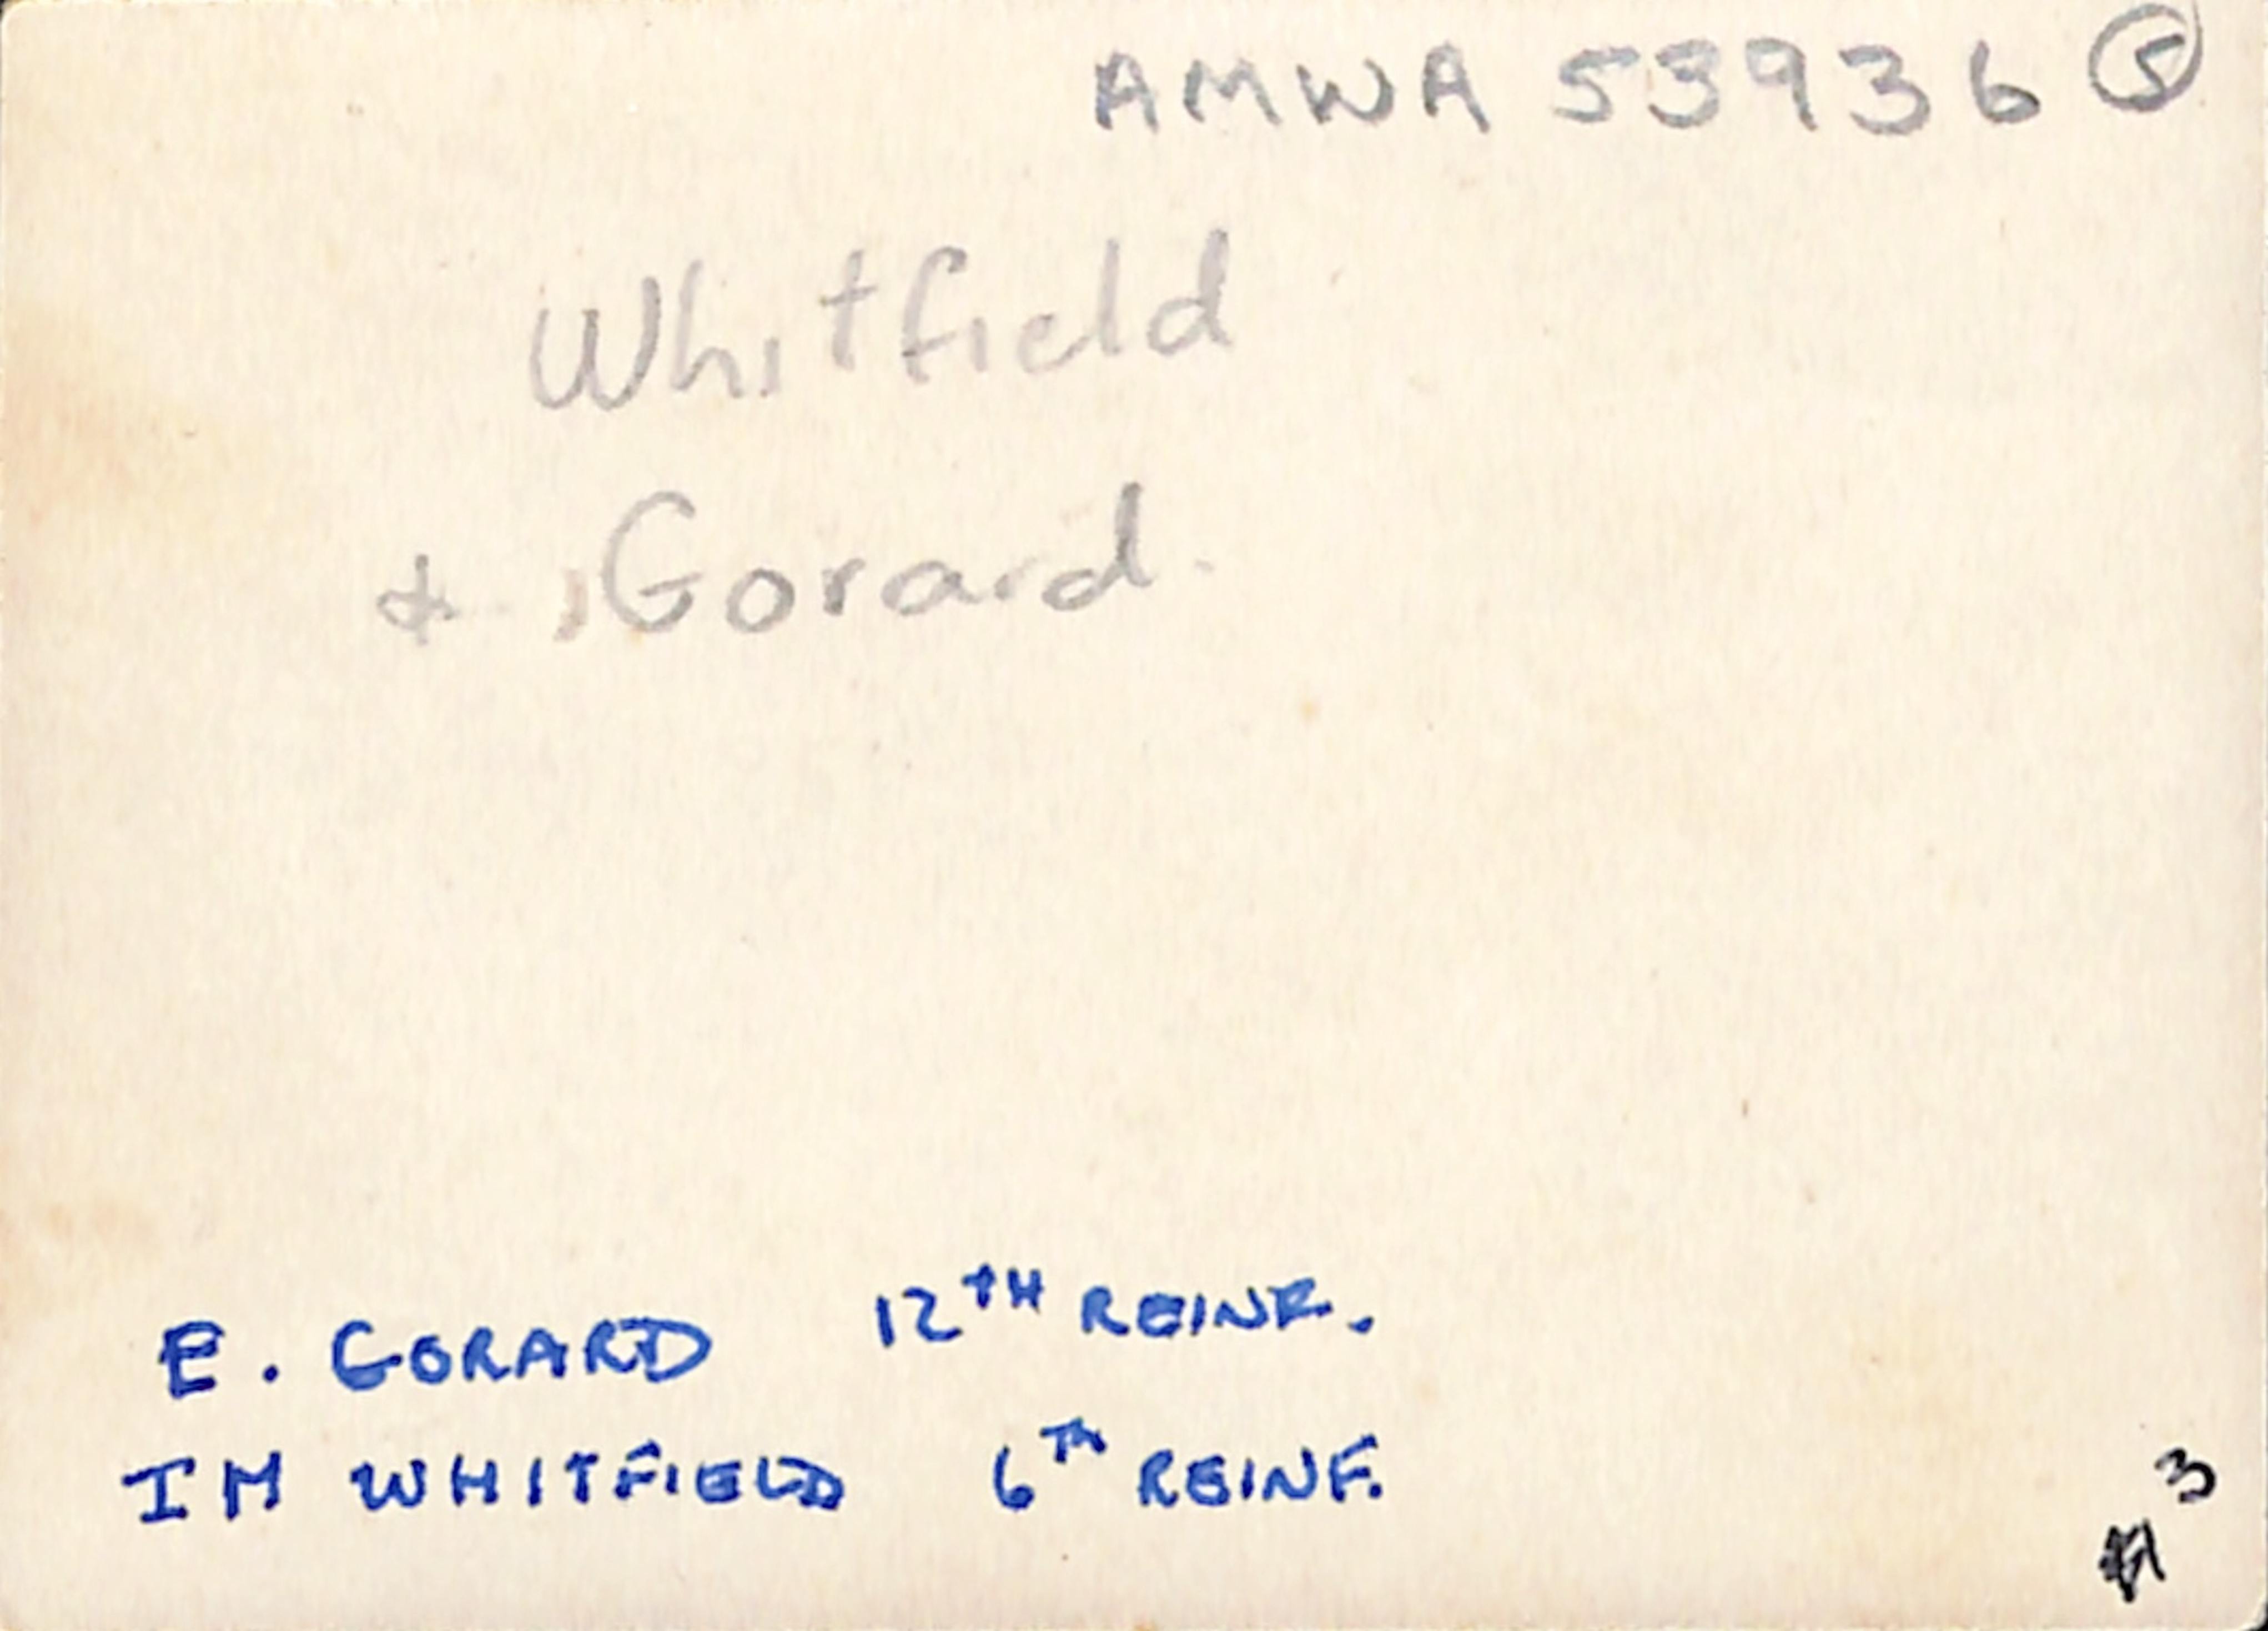 AMWA 53936 5
Whitfield
+ Gorard.
E. GORARD 12TH REINF.
IM WHITFIELD 6TH REINF.
3